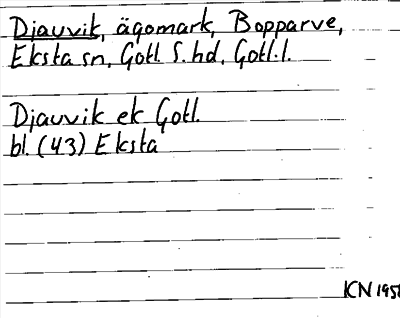 Djauvik, ägomark, Bopparve,
Eksta sn, Gotl. S. hd, Gotl. l.
Djauvik ek Gotl.
bl. (43) Eksta
ICN 1958